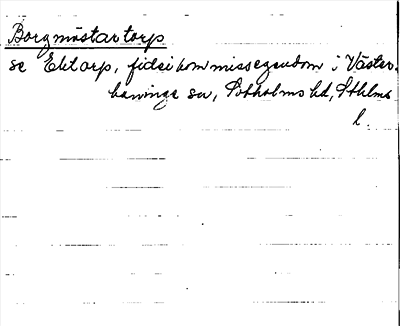 Borgmästartorp
se Ektorp, fideikommissegendom i Väster-
haninge sn, Sotholms hd, Sthlms
l.